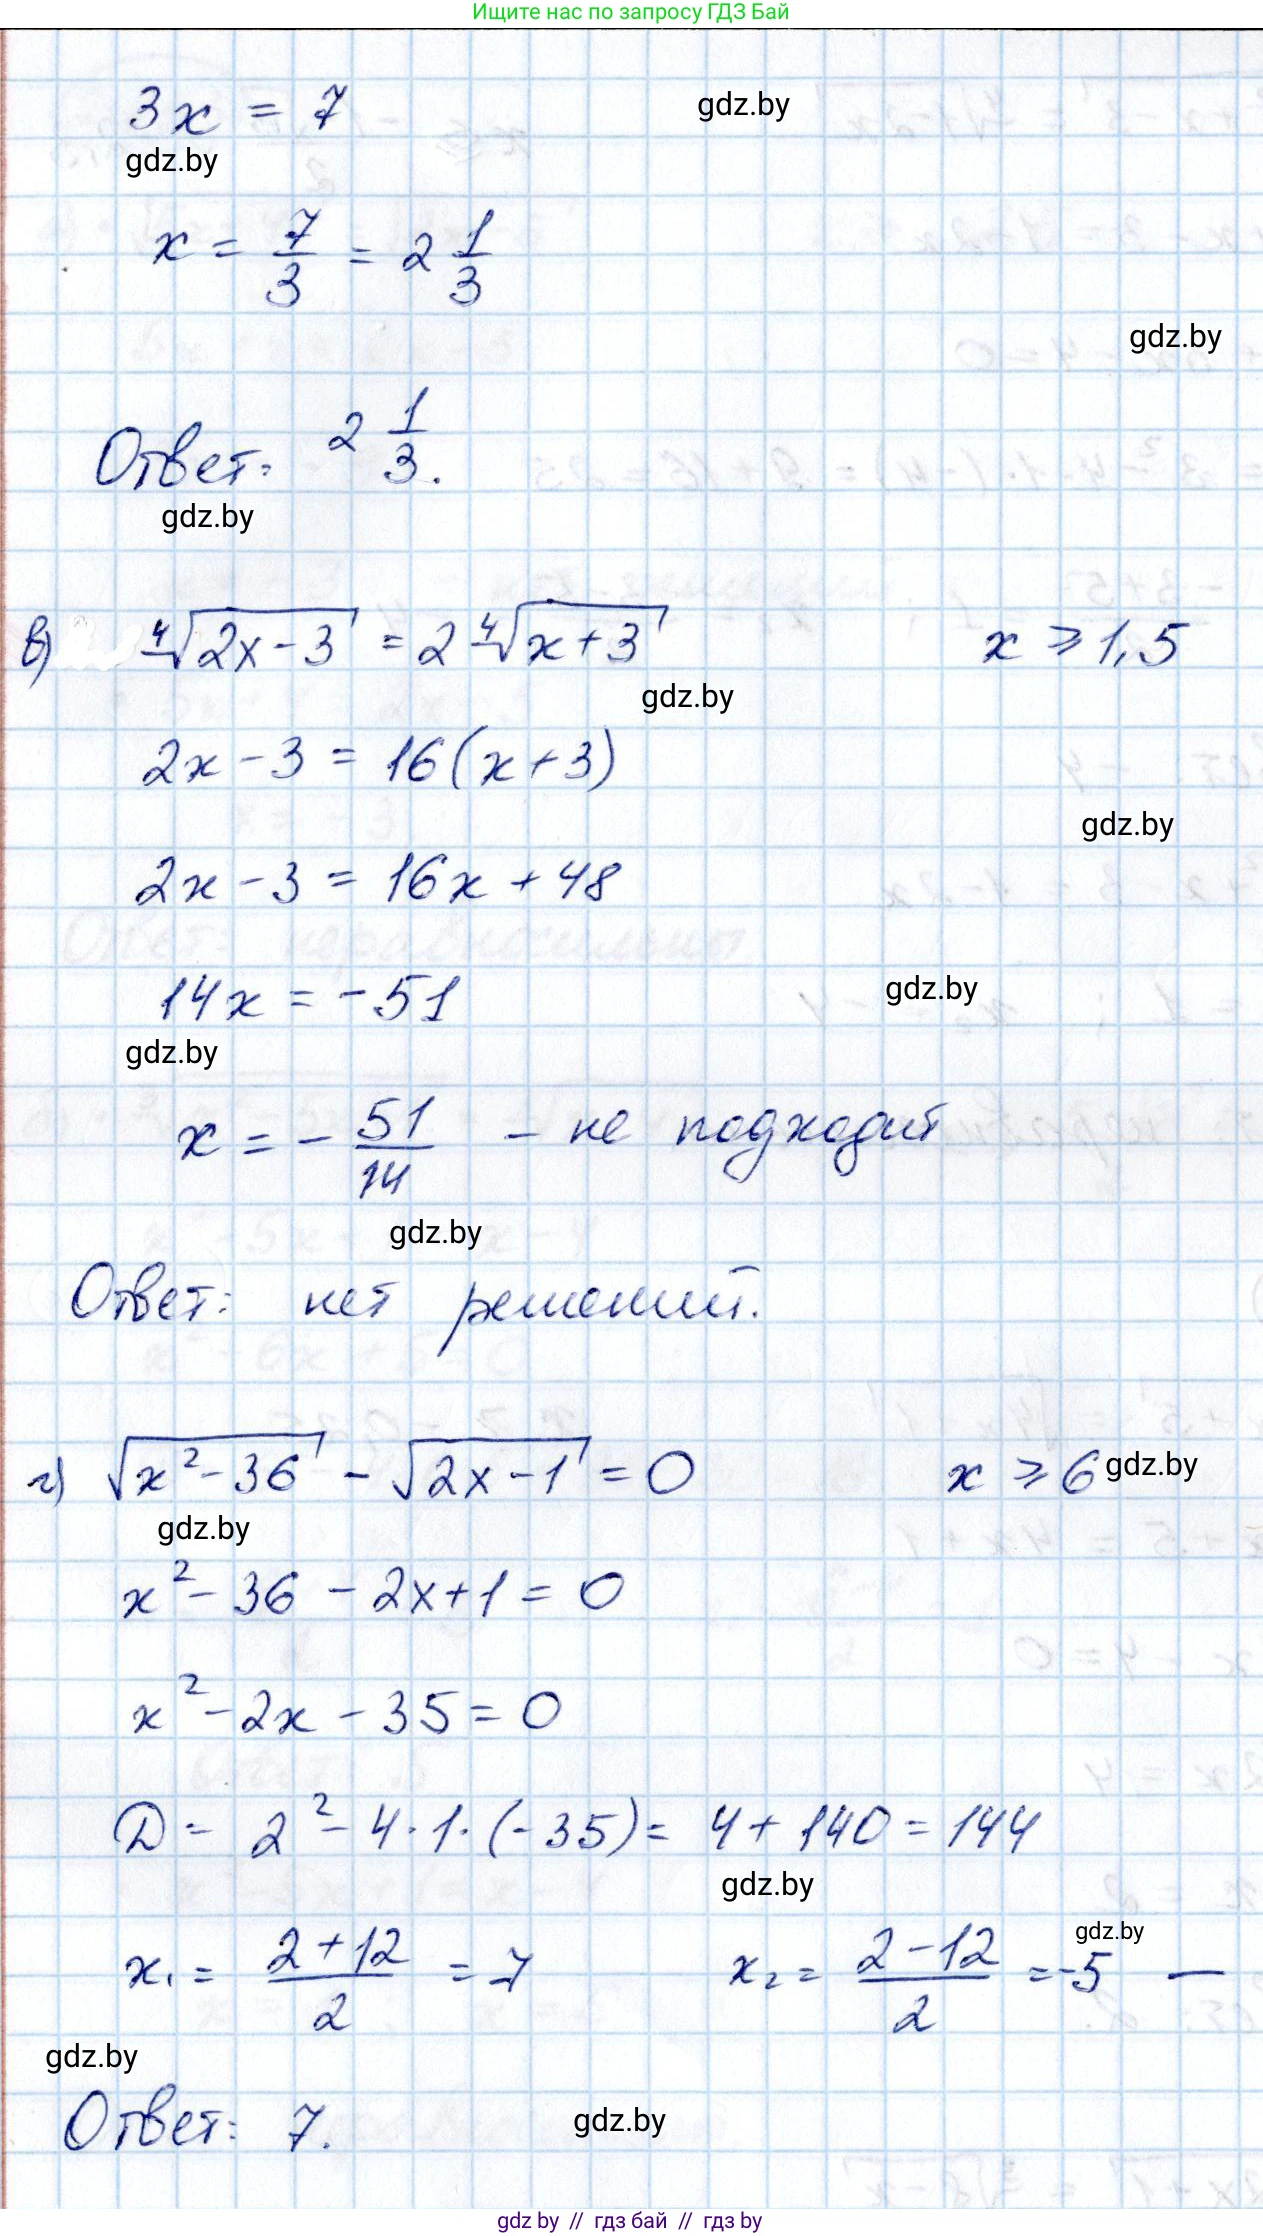 Ищите нас по запросу ГДЗ Бай
3x = 7
gdz.by
gdz.by
x = 7/3 = 2 1/3
gdz.by
Ответ: 2 1/3.
gdz.by
в) ⁴√(2x-3) = 2 ⁴√(x+3)    x ⩾ 1,5
gdz.by
2x - 3 = 16(x+3)
gdz.by
2x - 3 = 16x + 48
gdz.by
14x = -51
gdz.by
x = - 51/14 - не подходит
gdz.by
Ответ: нет решений.
г) √(x²-36) - √(2x-1) = 0    x ⩾ 6
gdz.by
gdz.by
x² - 36 - 2x + 1 = 0
x² - 2x - 35 = 0
D = 2² - 4·1·(-35) = 4 + 140 = 144
gdz.by
gdz.by
x₁ = (2+12)/2 = 7    x₂ = (2-12)/2 = -5 —
gdz.by
Ответ: 7.
gdz.by
gdz by // гдз бай // гдз by